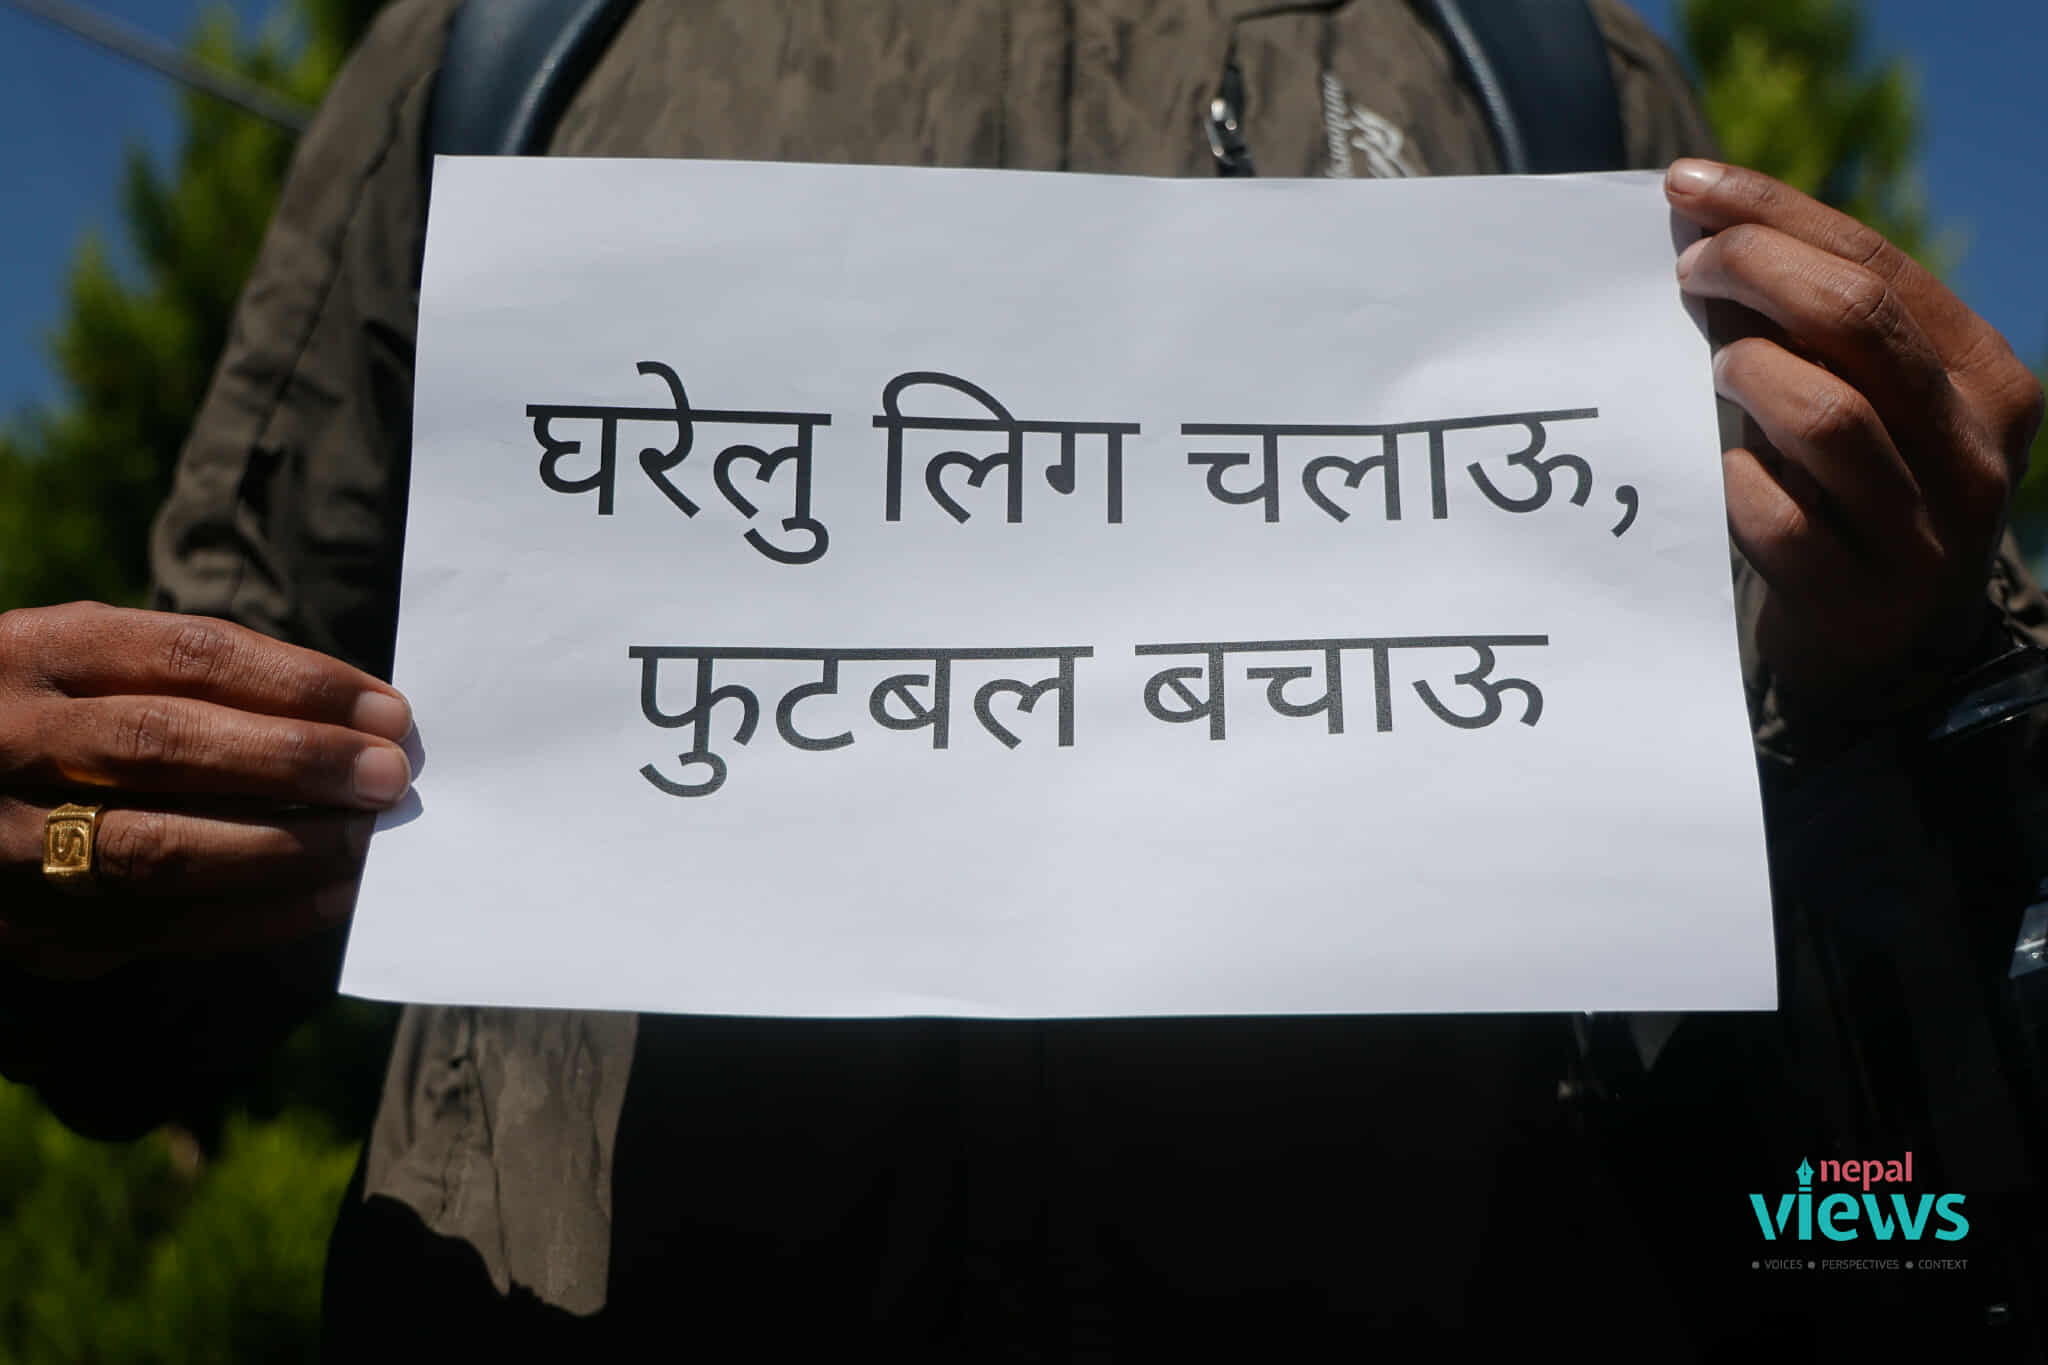 घरेलु लिग चलाऊ,
फुटबल बचाऊ
nepal
views
VOICES ● PERSPECTIVES ● CONTEXT